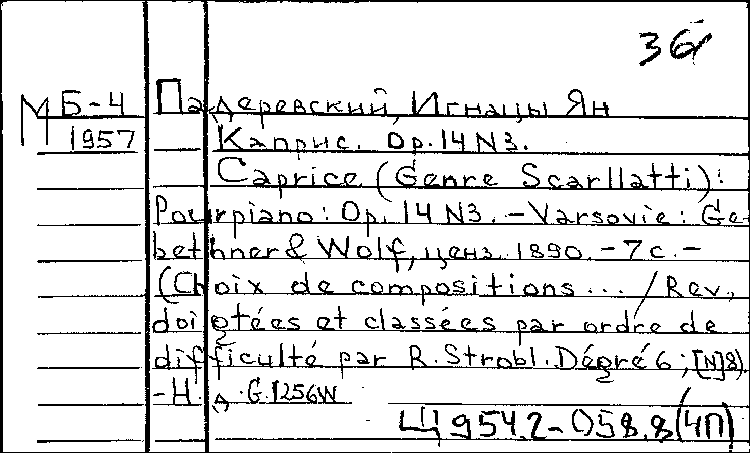 36
М Б-4 Падеревский, Игнацы Ян
1957 Каприс. Op. 14 N3.
Caprice (Genre Scarllatti):
Pour piano: Op. 14 N3. – Varsovie: Ge-
bethner & Wolf, ценз. 1890. – 7 с. –
(Choix de compositions ... / Rev.,
doigtées et classées par ordre de
difficulté par R. Strobl. Dégré 6; [N]8).
- Н. д. G. 1256 W
Щ 954.2-058.8(4П)